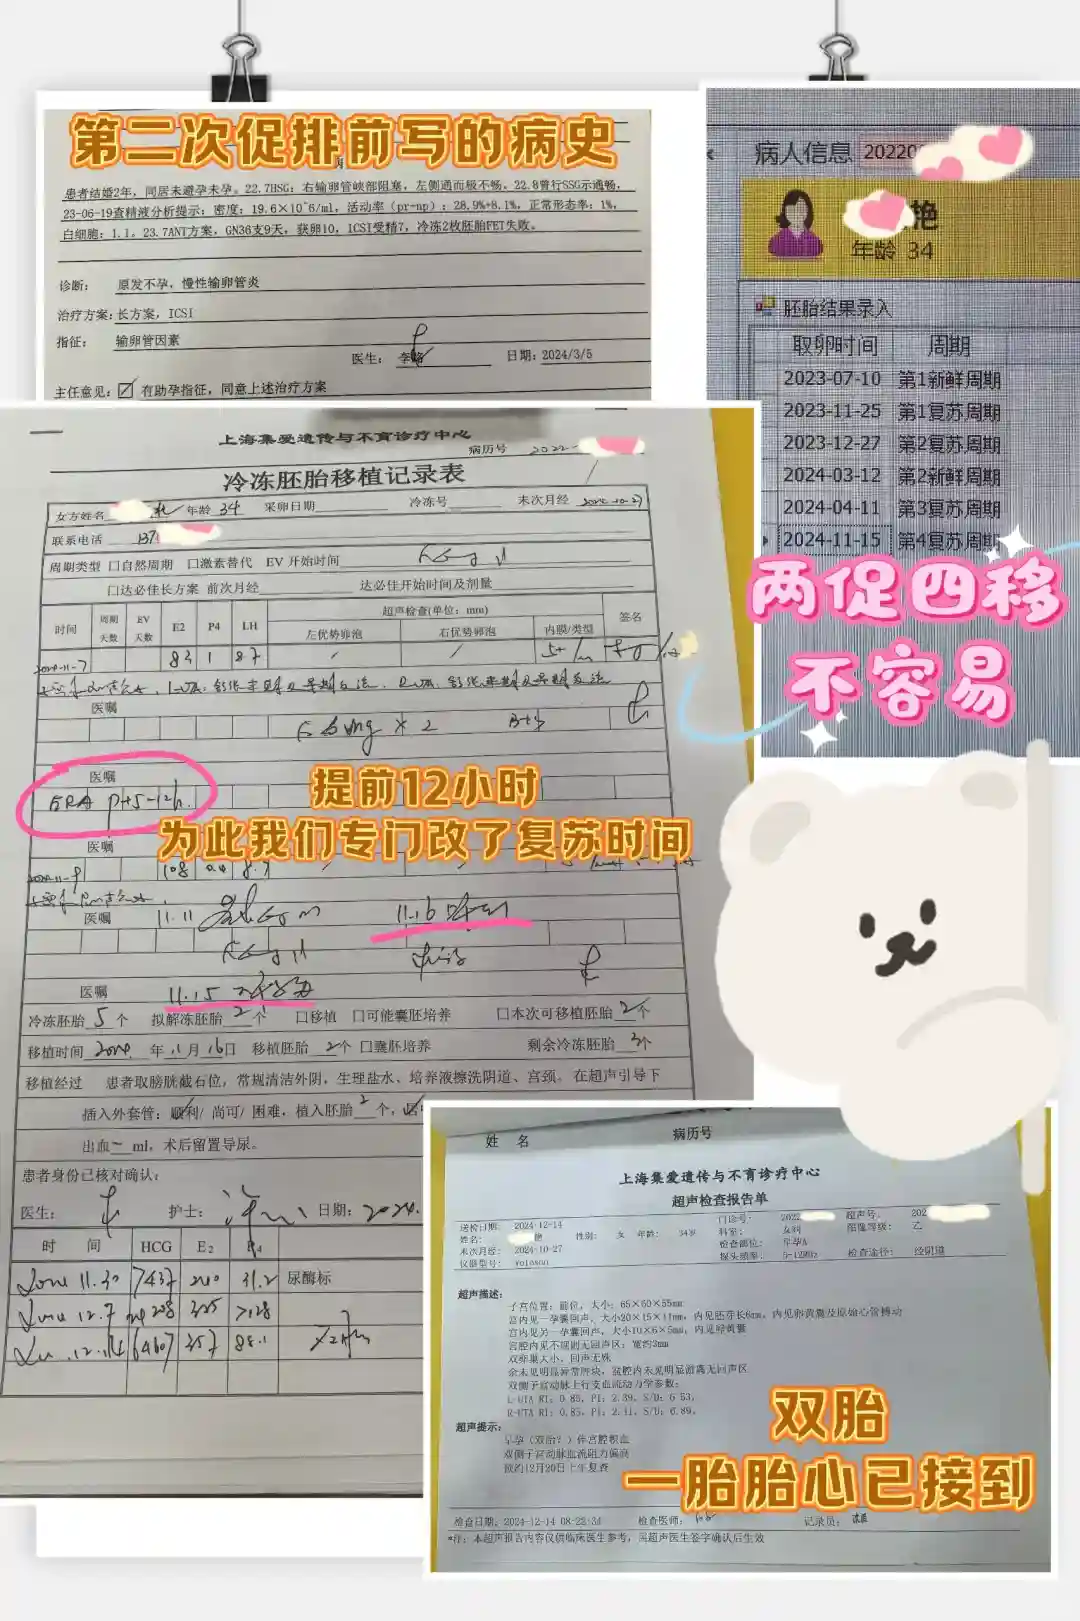 第二次促排前写的病史
患者结婚2年，同居未避孕未孕。22.7HSG：右输卵管峡部阻塞，左侧通而极不畅。22.8曾行SSG示通畅，
23-06-19查精液分析提示：密度：19.6×10^6/ml，活动率（pr+np）：28.9%+8.1%，正常形态率：1%，
白细胞：1.1。23.7ANT方案，GN36支9天，获卵10，ICSI受精7，冷冻2枚胚胎FET失败。
诊断： 原发不孕，慢性输卵管炎
治疗方案：长方案，ICSI
指征： 输卵管因素
医生： 日期：2024/3/5
主任意见：☑ 有助孕指征，同意上述治疗方案
病人信息 20220
艳
年龄 34
胚胎结果录入
取卵时间 周期
2023-07-10 第1新鲜周期
2023-11-25 第1复苏周期
2023-12-27 第2复苏周期
2024-03-12 第2新鲜周期
2024-04-11 第3复苏周期
2024-11-15 第4复苏周期
两促四移
不容易
上海集爱遗传与不育诊疗中心
病历号 2022-
冷冻胚胎移植记录表
女方姓名 年龄 34 采卵日期 冷冻号 末次月经 2024-10-27
联系电话 137
周期类型 口自然周期 口激素替代 EV 开始时间
口达必佳长方案 前次月经 达必佳开始时间及剂量
时间 周期天数 EV天数 E2 P4 LH 超声检查(单位：mm) 签名
左优势卵泡 右优势卵泡 内膜/类型
2024-11-7 83 1 8.7
医嘱
医嘱
ERA P+5-12h.
提前12小时
为此我们专门改了复苏时间
医嘱
医嘱 11.11 11.16
医嘱 11.15
冷冻胚胎 5 个 拟解冻胚胎 2 个 口移植 口可能囊胚培养 口本次可移植胚胎 2 个
移植时间 2024 年 11 月 16 日 移植胚胎 2 个 口囊胚培养 剩余冷冻胚胎 3 个
移植经过 患者取膀胱截石位，常规清洁外阴，生理盐水、培养液擦洗阴道、宫颈。在超声引导下
插入外套管：顺利/ 尚可/ 困难，植入胚胎 2 个，
出血 ml，术后留置导尿。
患者身份已核对确认：
医生： 护士： 日期：2024.
时 间 HCG E2 P4
2024 11.30 7437 31.2 尿酶标
2024 12.7 325 >128
12.14 357 88.1
姓 名 病历号
上海集爱遗传与不育诊疗中心
超声检查报告单
送检日期： 2024-12-14 门诊号： 2022 超声号： 202
姓名： 艳 性别： 女 年龄： 34岁 科室： 女科 图像等级： 乙
末次月经： 2024-10-27 检查部位： 早孕A
仪器型号： Voluson 探头频率： 5-12MHz 检查途径： 经阴道
超声描述：
子宫位置：前位，大小：65×60×55mm
宫内见一孕囊回声，大小20×15×11mm，内见胚芽长6mm，内见卵黄囊及原始心管搏动
宫内见另一孕囊回声，大小10×6×5mm，内见卵黄囊
宫腔内见不规则无回声区：宽约3mm
双卵巢大小、回声无殊
余未见明显异常肿块，盆腔内未见明显游离无回声区
双侧子宫动脉上行支血流动力学参数：
L-UTA RI：0.85，PI：2.39，S/D：6.53，
R-UTA RI：0.85，PI：2.11，S/D：6.89，
超声提示：
早孕（双胎？）伴宫腔积血
双侧子宫动脉血流阻力偏高
预约12月20日上午复查
双胎
一胎胎心已接到
检查日期：2024-12-14 08:23:34 检查医师： 记录员：
*注：本超声报告内容仅供临床医生参考，需超声医生签字确认后生效